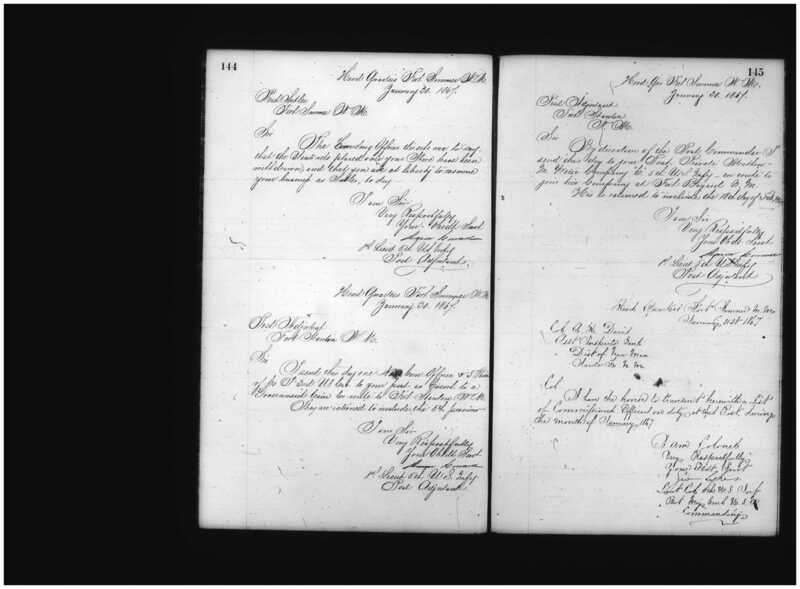 144
Head Quarters Fort Sumner N. M.
January 20. 1867.
Post Sutler
Fort Sumner N. M.
Sir
The Comdg Officer directs me to say,
that the placed over your Store have been
withdrawn, and that you are at liberty to resume
your business as Sutler, to day
I am Sir
Very Respectfully
Your Obedt Servt
1st Lieut 5th U.S. Infty
Post Adjutant.
Head Quarters Fort Sumner N. M.
January 20. 1867.
Post Adjutant
Fort Stanton N. M.
Sir
I send this day one Non Com Officer & 3
of Co I 3rd U.S. Cav to your post as Guard to a
Government train en route to Fort Stanton N. M.
They are rationed to include the
I am Sir
Very Respectfully
Your Obedt Servt
1st Lieut 5th U.S. Infty
Post Adjutant
145
Head Qrs Fort Sumner N. M.
January 20. 1867.
Post Adjutant
Fort Stanton
N. M.
Sir
By direction of the Post Commander I
send this day to your Post, Private
Company 5th U.S. Infty, en route to
join his Company at Fort N. M.
He is rationed to include the day of
I am Sir
Very Respectfully
Your Obdt Servt
1st Lieut 5th U.S. Infty
Post Adjutant
Head Quarters Fort Sumner N. M.
January 31st 1867
Col. Davis
Asst Inspector Genl
Dist of New Mex
Santa Fe N. M.
Col
I have the honor to transmit herewith a List
of Commissioned Officers on duty at this Post, during
the month of January 1867
I am Colonel
Very Respectfully
Your Obdt Servt
Lieut Col U.S. Inf
Bvt Genl U.S.A.
Commanding